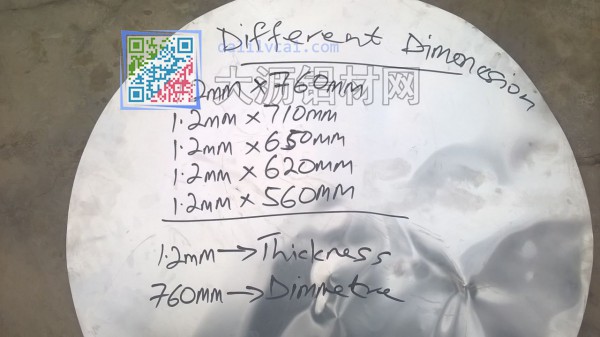 Different Dimenssion
dalilvcai.com
大沥铝材网
.2mm x 760mm
1.2mm x 710mm
1.2mm x 650mm
1.2mm x 620mm
1.2mm x 560mm
1.2mm → Thickness
760mm → Dimmetre